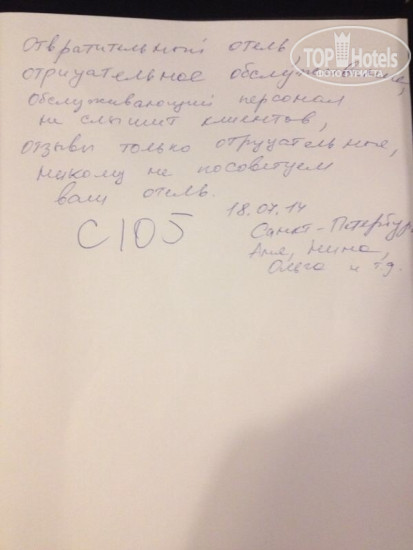 Отвратительный отель,
отрицательное обслуживание,
обслуживающий персонал
не слышит клиентов,
отзывы только отрицательные,
никому не посоветуем
ваш отель.
18.07.14
C105
Санкт-Петербург
Аня, Нина,
Ольга и т.д.
TOP Hotels